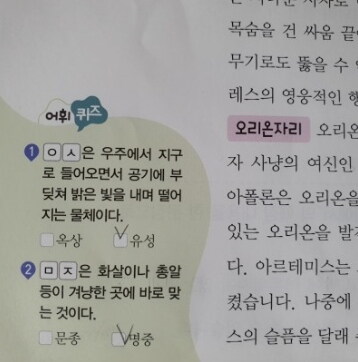 어휘 퀴즈
1 ㅇㅅ은 우주에서 지구
로 들어오면서 공기에 부
딪쳐 밝은 빛을 내며 떨어
지는 물체이다.
옥상 유성
2 ㅁㅈ은 화살이나 총알
등이 겨냥한 곳에 바로 맞
는 것이다.
문종 명중
목숨을 건 싸움 끝
무기로도 뚫을 수
레스의 영웅적인
오리온자리 오리온
자 사냥의 여신인
아폴론은 오리온을
있는 오리온을
다. 아르테미스는
켰습니다. 나중에
스의 슬픔을 달래